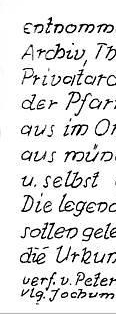 entnomm
Archiv, Th
Privatarc
der Pfar
aus im Or
aus mün
u. selbst
Die legend
sollen gele
die Urkun
verf. v. Peter
vlg. Jochum